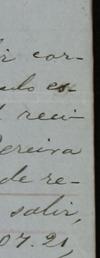 ir cor-
ulo es-
t reci
Pereira
de re-
salir,
07.21,